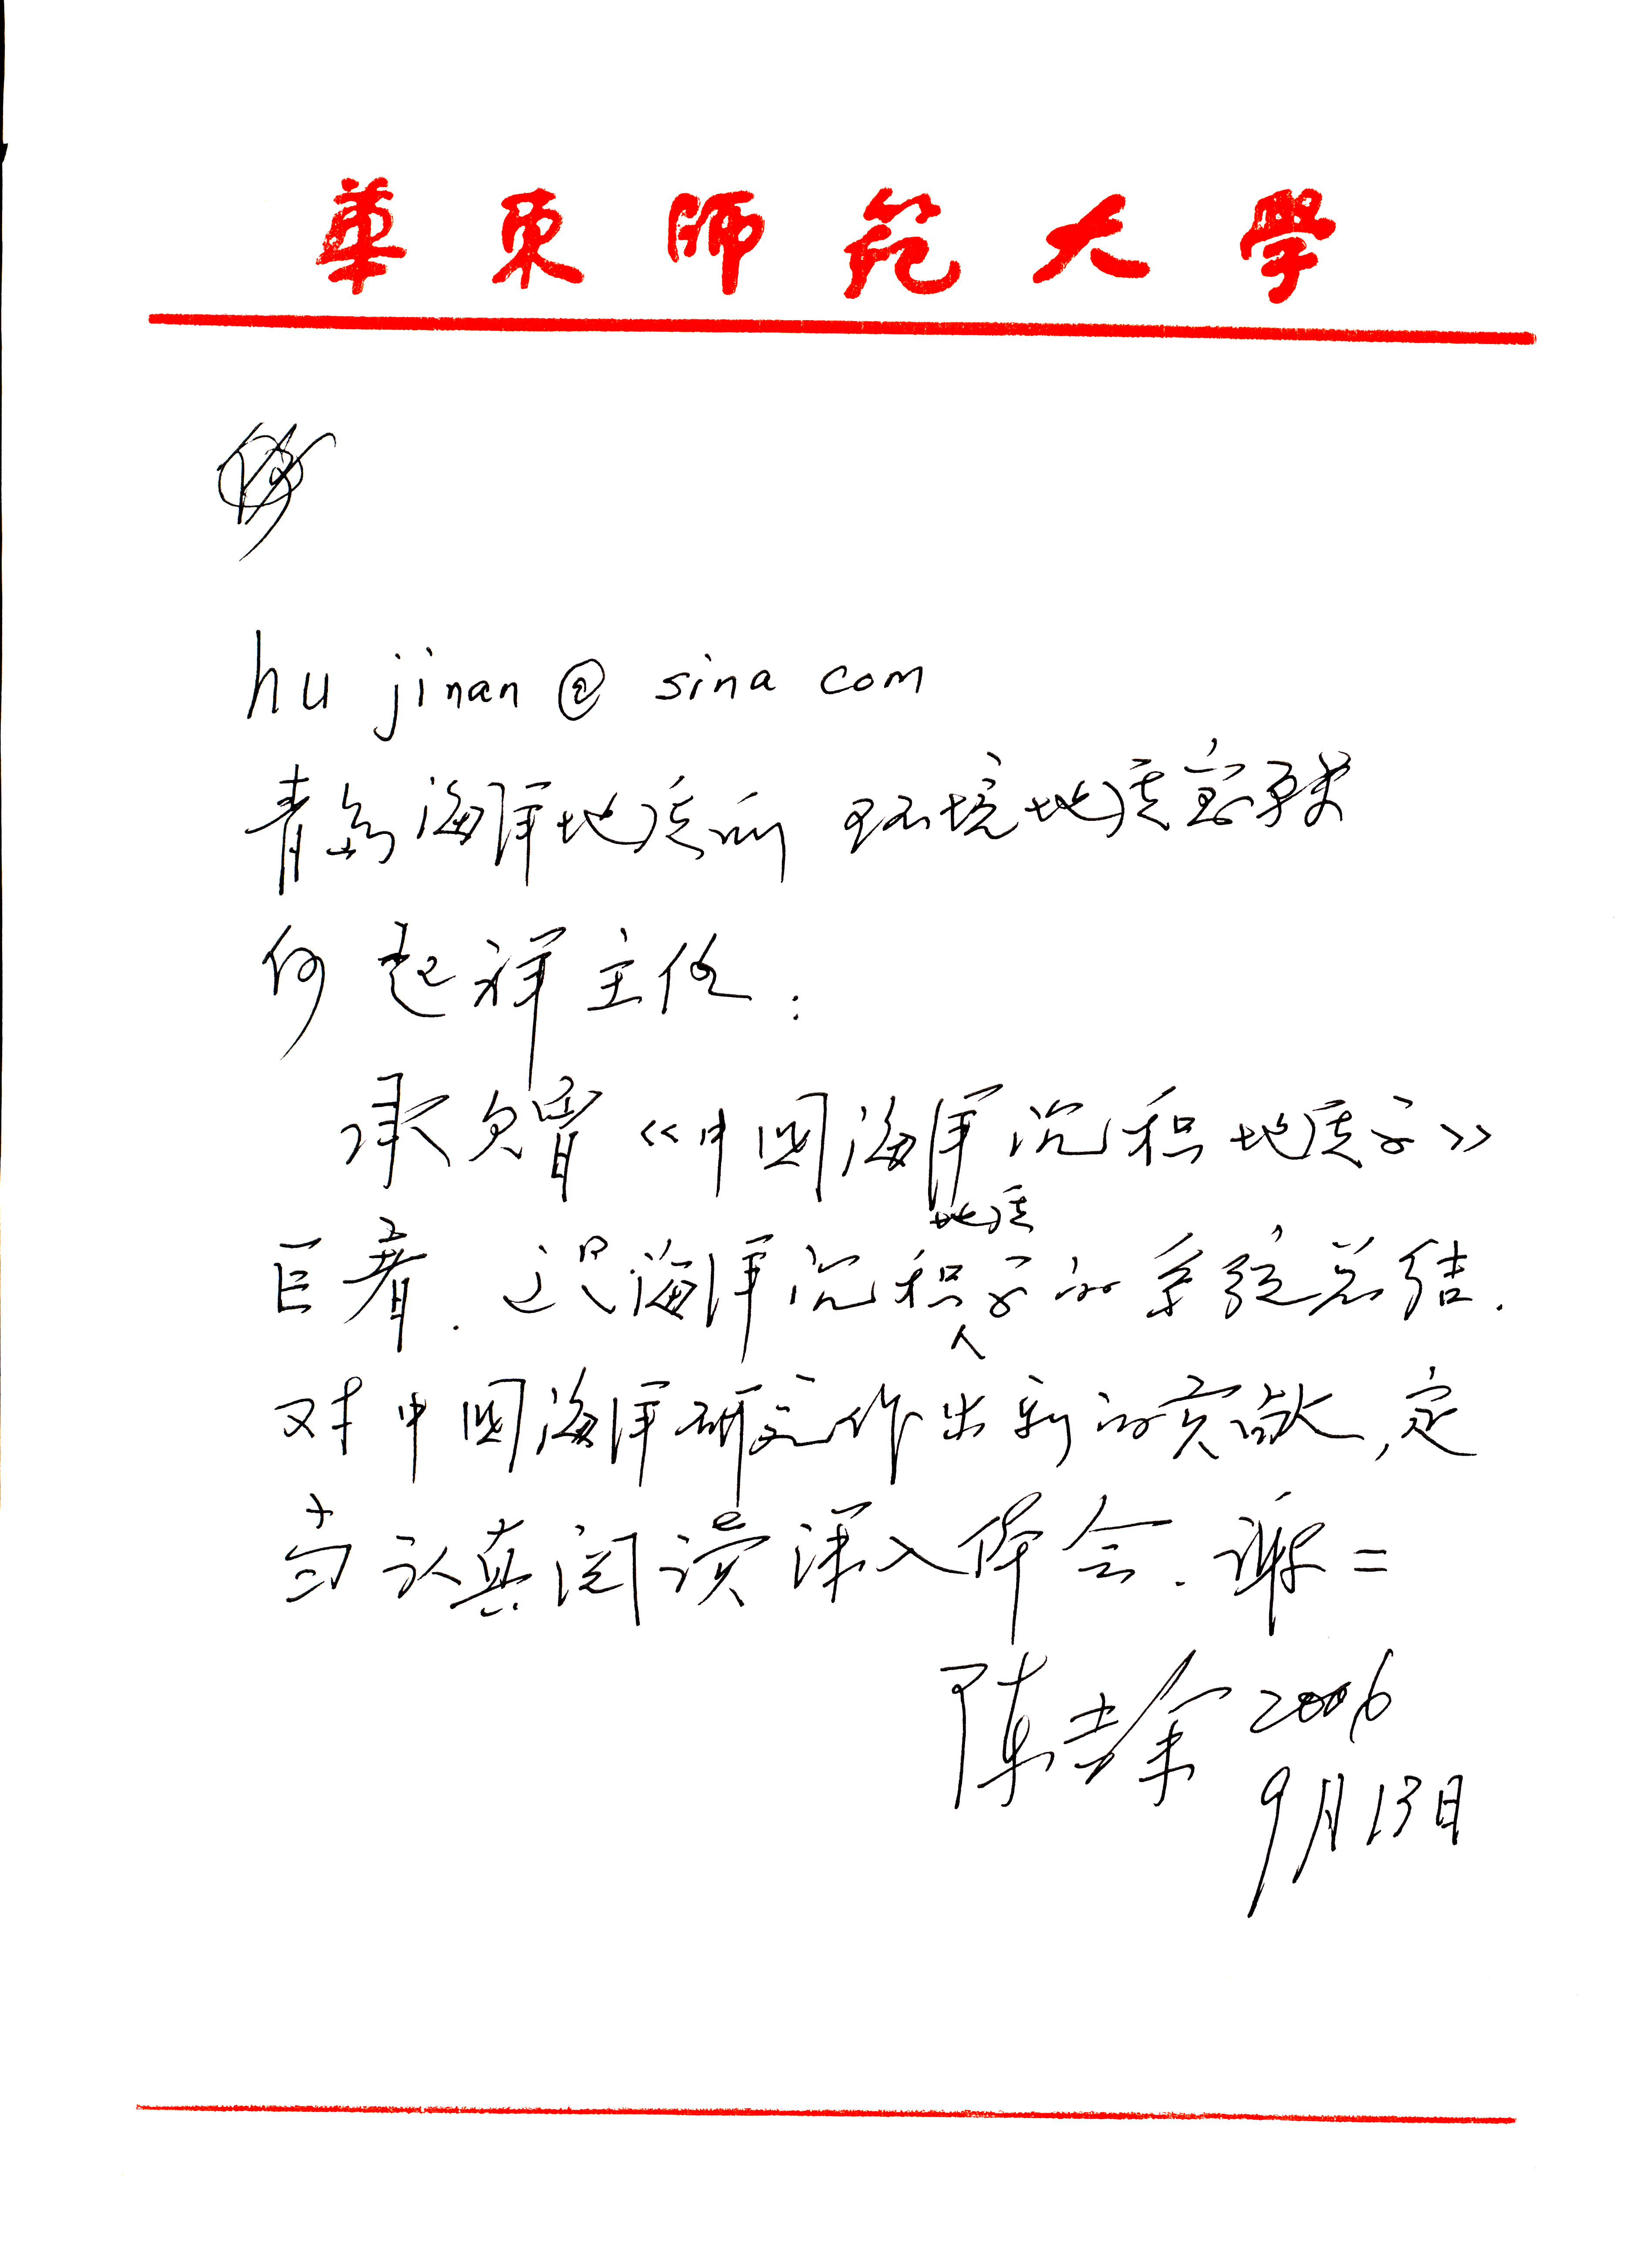 華東師範大學
hu jinan @ sina com
青岛海洋地质所 环境地质室转
何起祥主任：
承欠赠《中国海洋沉积地质学》
巨著．这是海洋沉积地质学的系统总结．
对中国海洋研究作出新的贡献，定
当认真阅读深入体会．谢=
陈吉余 2006
9月13日